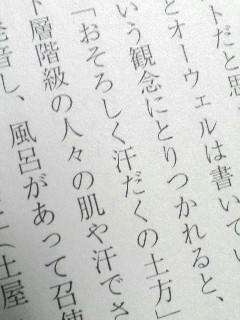 トだと思
とオーウェルは書いてい
いう観念にとりつかれると、
「おそろしく汗だくの土方」
下層階級の人々の肌や汗でさ
発音し、風呂があって召使
土屋